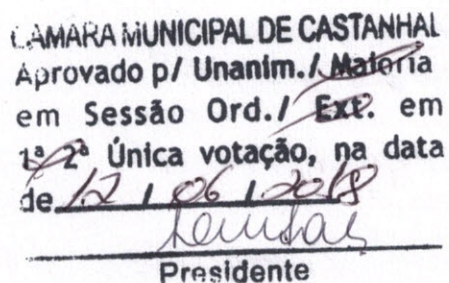 CÂMARA MUNICIPAL DE CASTANHAL
Aprovado p/ Unanim./ Maioria
em Sessão Ord./ Ext. em
1ª 2ª Única votação, na data
de 12 / 06 / 2018
Presidente